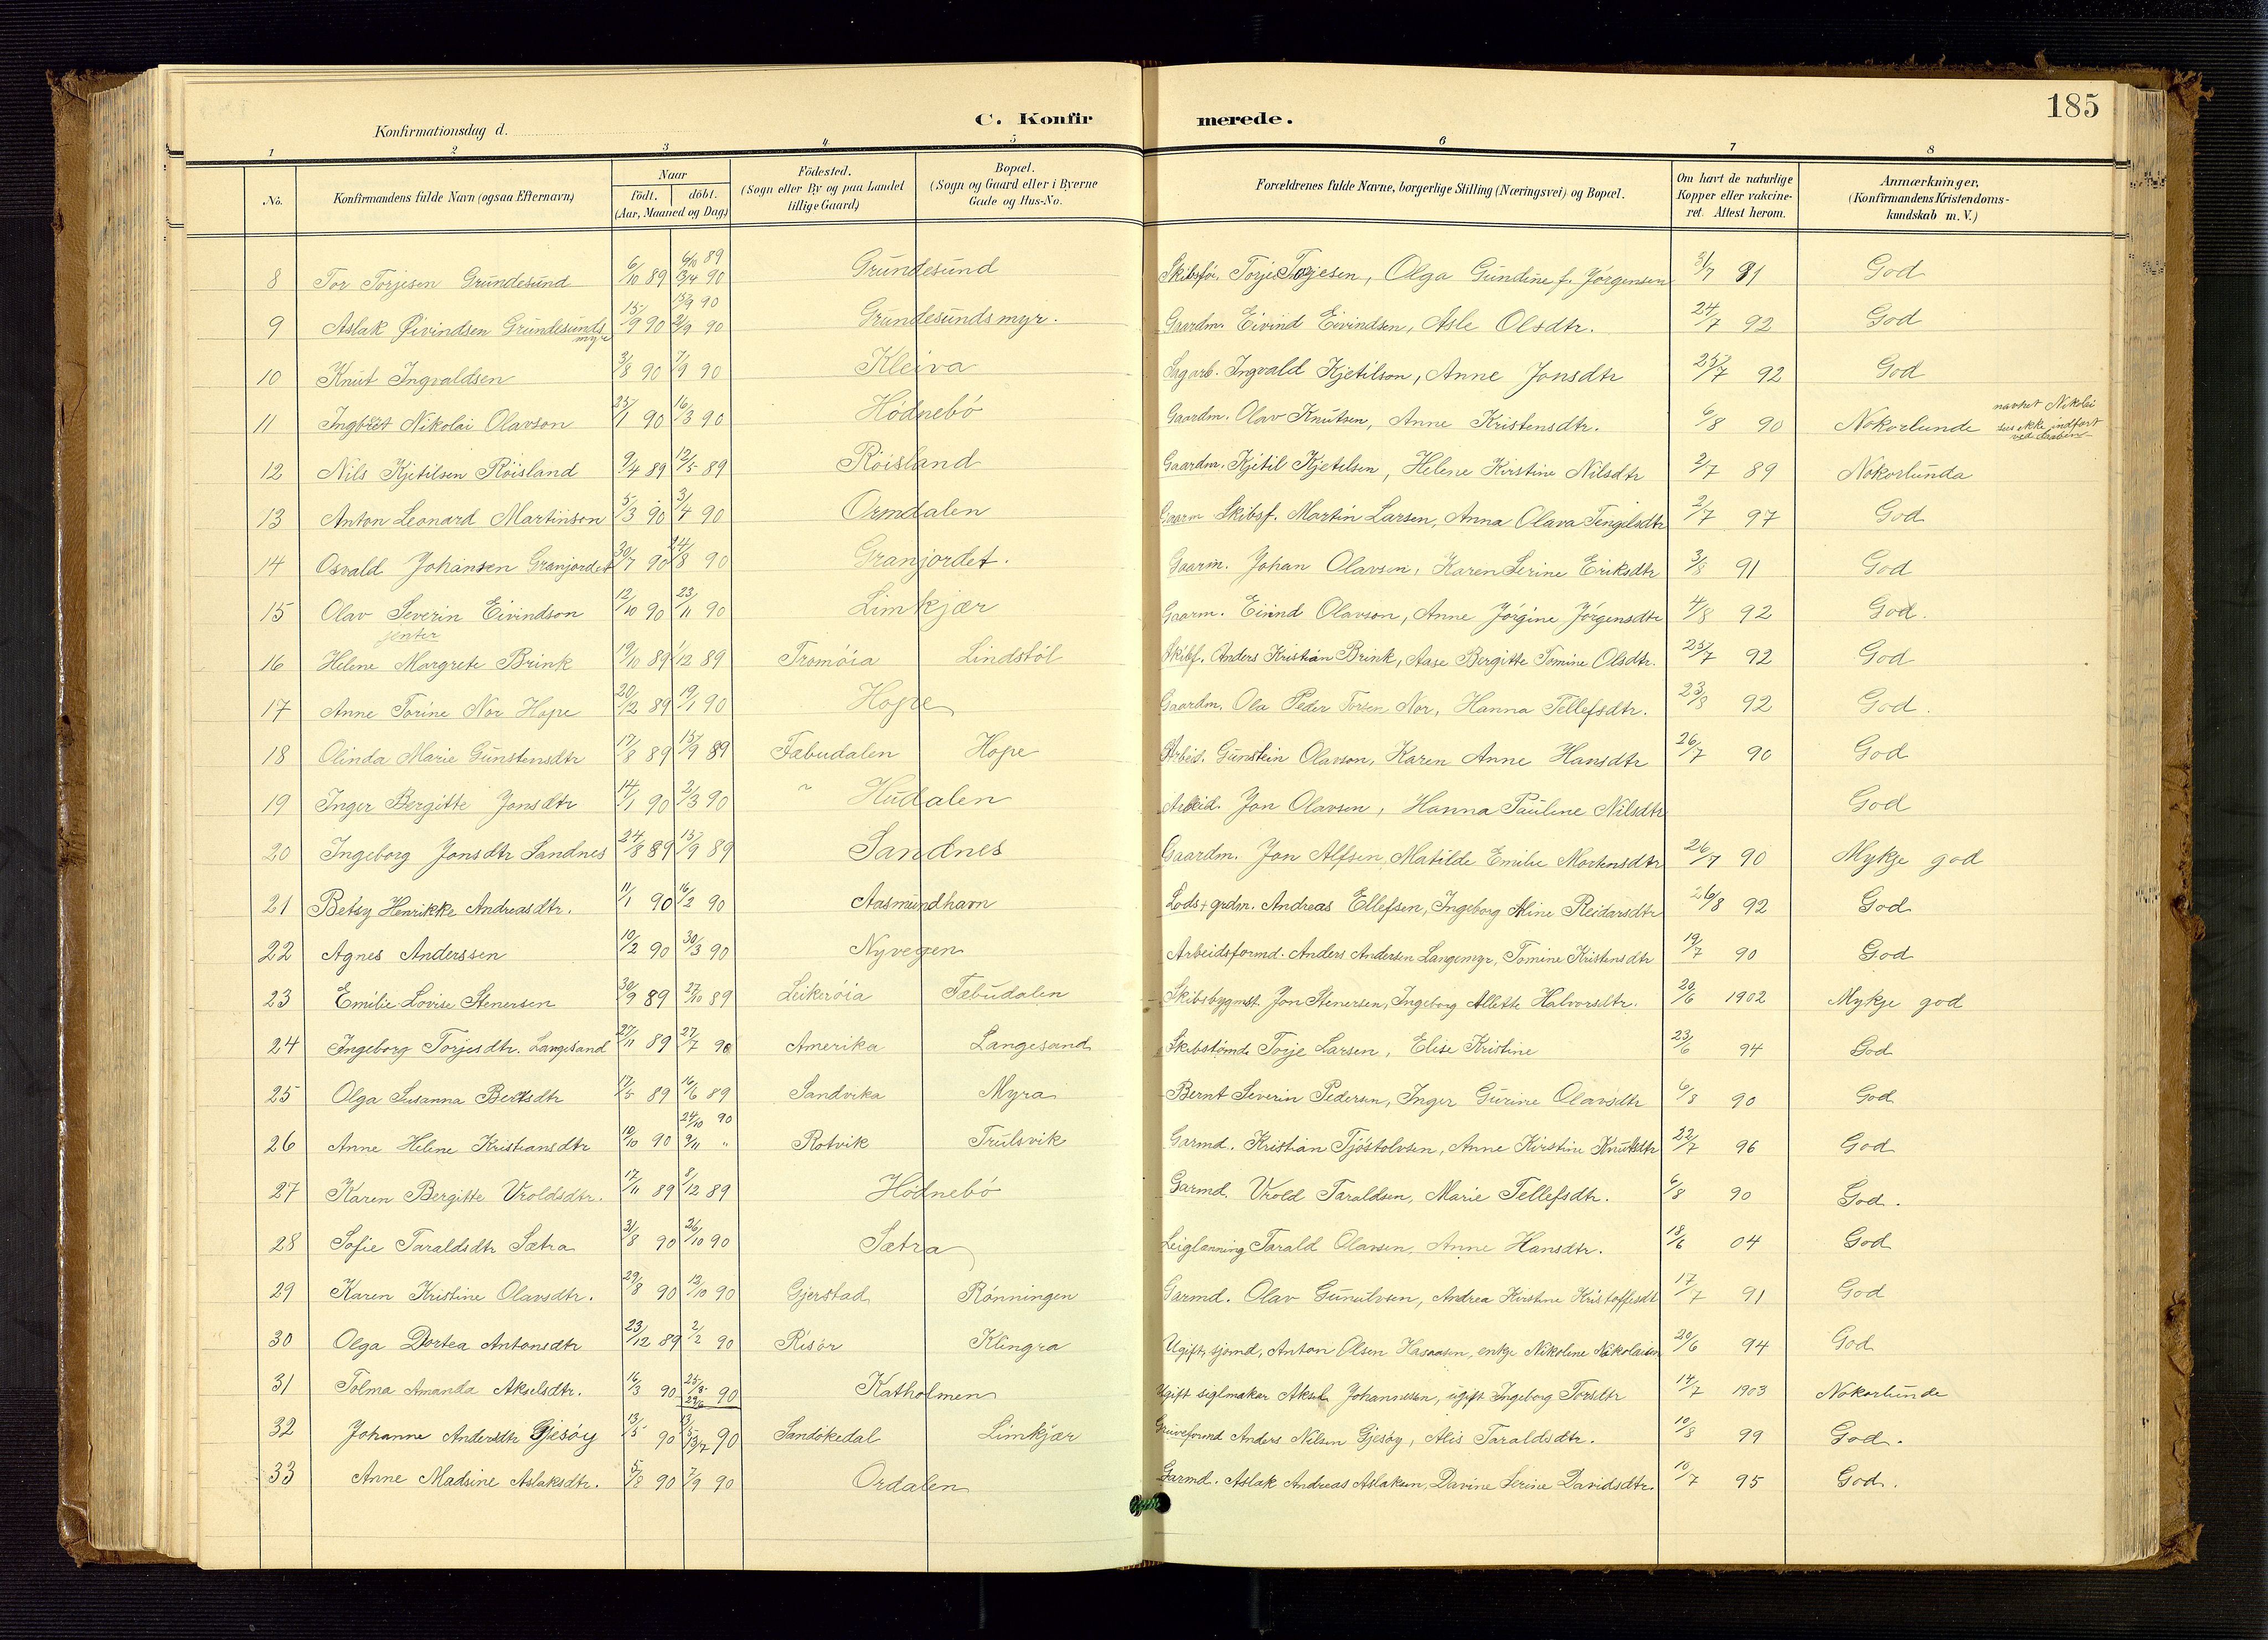 185
Konfirmationsdag d.
C. Konfirmerede.
1 2 3 4 5 6 7 8
No. Konfirmandens fulde Navn (ogsaa Efternavn) Naar födt. döbt. (Aar, Maaned og Dag) Födested. (Sogn eller By og paa Landet tillige Gaard) Bopæl. (Sogn og Gaard eller i Byerne Gade og Hus-No. Forældrenes fulde Navne, borgerlige Stilling (Næringsvei) og Bopæl. Om havt de naturlige Kopper eller vakcineret. Attest herom. Anmærkninger, (Konfirmandens Kristendomskundskab m. V.)
8 Tor Torjesen Grundesund 6/10 89 6/10 89 13/4 90 Grundesund Skibsför. Torje Torjesen, Olga Gundine f. Jörgensen 31/7 91 God
9 Aslak Øivindsen Grundesundsmyr 15/9 90 15/9 90 21/9 90 Grundesundsmyr. Gaardm. Eivind Eivindsen, Asle Olsdtr. 24/7 92 God
10 Knut Ingvaldsen 3/8 90 7/9 90 Kleiva Sagarb. Ingvald Kjetilson, Anne Jonsdtr 25/7 92 God
11 Ingbret Nikolai Olavson 25/1 90 16/3 90 Hödnebö Gaardm. Olav Knutsen, Anne Kristensdtr. 6/8 90 Nokorlunde navnet Nikolai sees ikke indfört ved daaben
12 Nils Kjetilsen Röisland 9/4 89 12/5 89 Röisland Gaardm. Kjetil Kjetilsen, Helene Kirstine Nilsdtr 2/7 89 Nokorlunda
13 Anton Leonard Martinson 5/3 90 3/4 90 Ormdalen Gaarm Skibsf. Martin Larsen, Anna Olava Tengelsdtr 2/7 97 God
14 Osvald Johansen Granjordet 30/7 90 24/8 90 Granjordet. Gaarm. Johan Olavsen, Karen Serine Eriksdtr 3/8 91 God
15 Olav Severin Eivindson 12/10 90 23/11 90 Limkjær Gaarm. Eivind Olavson, Anne Jörgine Jörgensdtr 4/8 92 God.
jenter
16 Helene Margrete Brink 19/10 89 1/12 89 Tromöia Lindstöl Skibsf. Anders Kristian Brink, Aase Bergitte Tomine Olsdtr. 25/7 92 God
17 Anne Torine Nor Hope 20/12 89 19/1 90 Hope Gaardm. Ola Peder Torsen Nor, Hanna Tellefsdtr. 23/8 92 God.
18 Olinda Marie Gunstensdtr 17/8 89 15/9 89 Fæbudalen Hope Arbeis. Gunstein Olavson, Karen Anne Hansdtr 26/7 90 God
19 Inger Bergitte Jonsdtr 14/1 90 2/3 90 " Hudalen Arbeid. Jon Olavsen, Hanna Pauline Nilsdtr God
20 Ingeborg Jonsdtr Sandnes 24/8 89 15/9 89 Sandnes Gaardm. Jon Alfsen, Matilde Emilie Mortensdtr 26/7 90 Mykje god
21 Betsy Henrikke Andreasdtr. 11/1 90 16/2 90 Aasmundhavn Lods+grdm. Andreas Ellefsen, Ingeborg Aline Reidarsdtr 26/8 92 God
22 Agnes Anderssen 10/2 90 30/3 90 Nyvegen Arbeidsformd. Anders Andersen Langemyr, Tomine Kristensdtr 19/7 90 God
23 Emilie Lovise Stenersen 30/9 89 27/10 89 Leikeröia Fæbudalen Skibsbygmst. Jon Stenersen, Ingeborg Allette Halvorsdtr. 20/6 1902 Mykje god
24 Ingeborg Torjesdtr. Langesand 27/11 89 27/7 90 Amerika Langesand Skibstömd. Torje Larsen, Elise Kristine 23/6 94 God
25 Olga Susanna Berntsdtr 17/5 89 16/6 89 Sandvika Myra Bernt Severin Pedersen, Inger Gurine Olavsdtr 6/8 90 God
26 Anne Helene Kristiansdtr 10/10 90 24/10 90 9/11 " Rotvik Trulsvik Garmd. Kristian Tjöstolvsen, Anne Kirstine Knutsdtr 22/7 96 God
27 Karen Bergitte Vroldsdtr. 17/11 89 8/12 89 Hödnebö Garmd. Vrold Taraldsen, Marie Tellefsdtr. 6/8 90 God.
28 Sofie Taraldsdtr Sætra 31/8 90 26/10 90 Sætra Leiglænning Tarald Olavsen, Anne Hansdtr. 18/6 04 God
29 Karen Kristine Olavsdtr. 29/8 90 12/10 90 Gjerstad Rönningen Garmd. Olav Gunulvsen, Andrea Kirstine Kristoffersdt 17/7 91 God
30 Olga Dortea Antonsdtr 23/12 89 2/2 90 Risör Klingra Ugift sjömd, Anton Olsen Hasaasen, enkje Nikoline Nikolaisen 20/6 94 God
31 Tolma Amanda Akselsdtr. 16/3 90 25/3 29/6 90 Katholmen Ugift seglmakar Aksel Johannessen, ugift Ingeborg Torsdtr 14/7 1903 Nokorlunde
32 Johanne Andersdtr Gjesöy 13/5 90 13/5 13/7 90 Sandökedal Limkjær Gruveformd Anders Nilsen Gjesöy, Alis Taraldsdtr. 10/8 99 God.
33 Anne Madsine Aslaksdtr. 5/8 90 7/9 90 Ordalen Garmd. Aslak Andreas Aslaksen, Davine Serine Davidsdtr. 10/7 95 God.